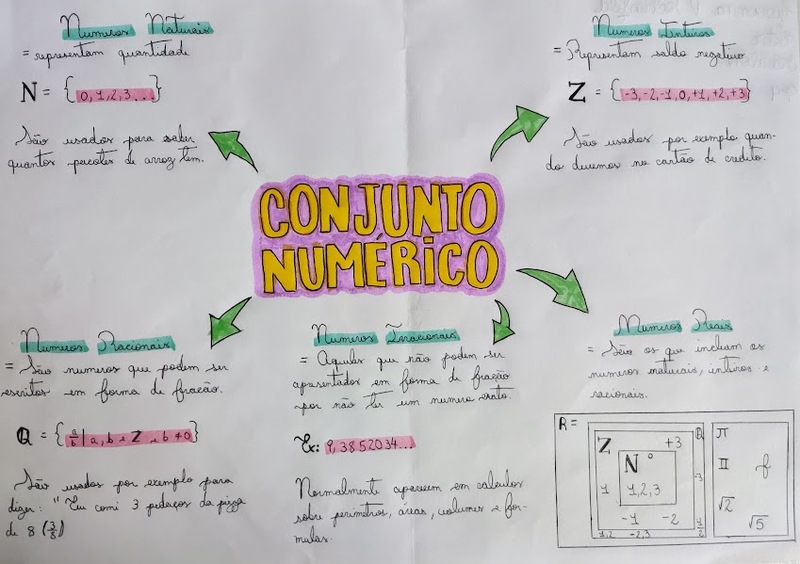 Numeros Naturais
= representam quantidade
N = { 0, 1, 2, 3... }
São usados para saber
quantos pacotes de arroz tem.
Numeros Inteiros
= Representam saldo negativo
Z = { -3, -2, -1, 0, +1, +2, +3 }
São usados por exemplo quan-
do devemos no cartão de credito.
CONJUNTO
NUMÉRICO
Numeros Racionais
= São numeros que podem ser
escritos em forma de fração.
Q = { a/b | a, b e Z, b ≠ 0 }
São usados por exemplo para
dizer: "Eu comi 3 pedaços da pizza
de 8 (3/8)
Numeros Irracionais
= Aqueles que não podem ser
apresentados em forma de fração
por não ter um numero exato.
Ex: 9,3852034...
Normalmente aparecem em calculos
sobre perimetros, areas, volumes e for-
mulas.
Numeros Reais
= São os que incluem os
numeros naturais, inteiros e
racionais.
R =
Z +3
N 0
1 1,2,3
-1 -2
1,2 -2,3
Q
-3
1/2
π
√2
√5